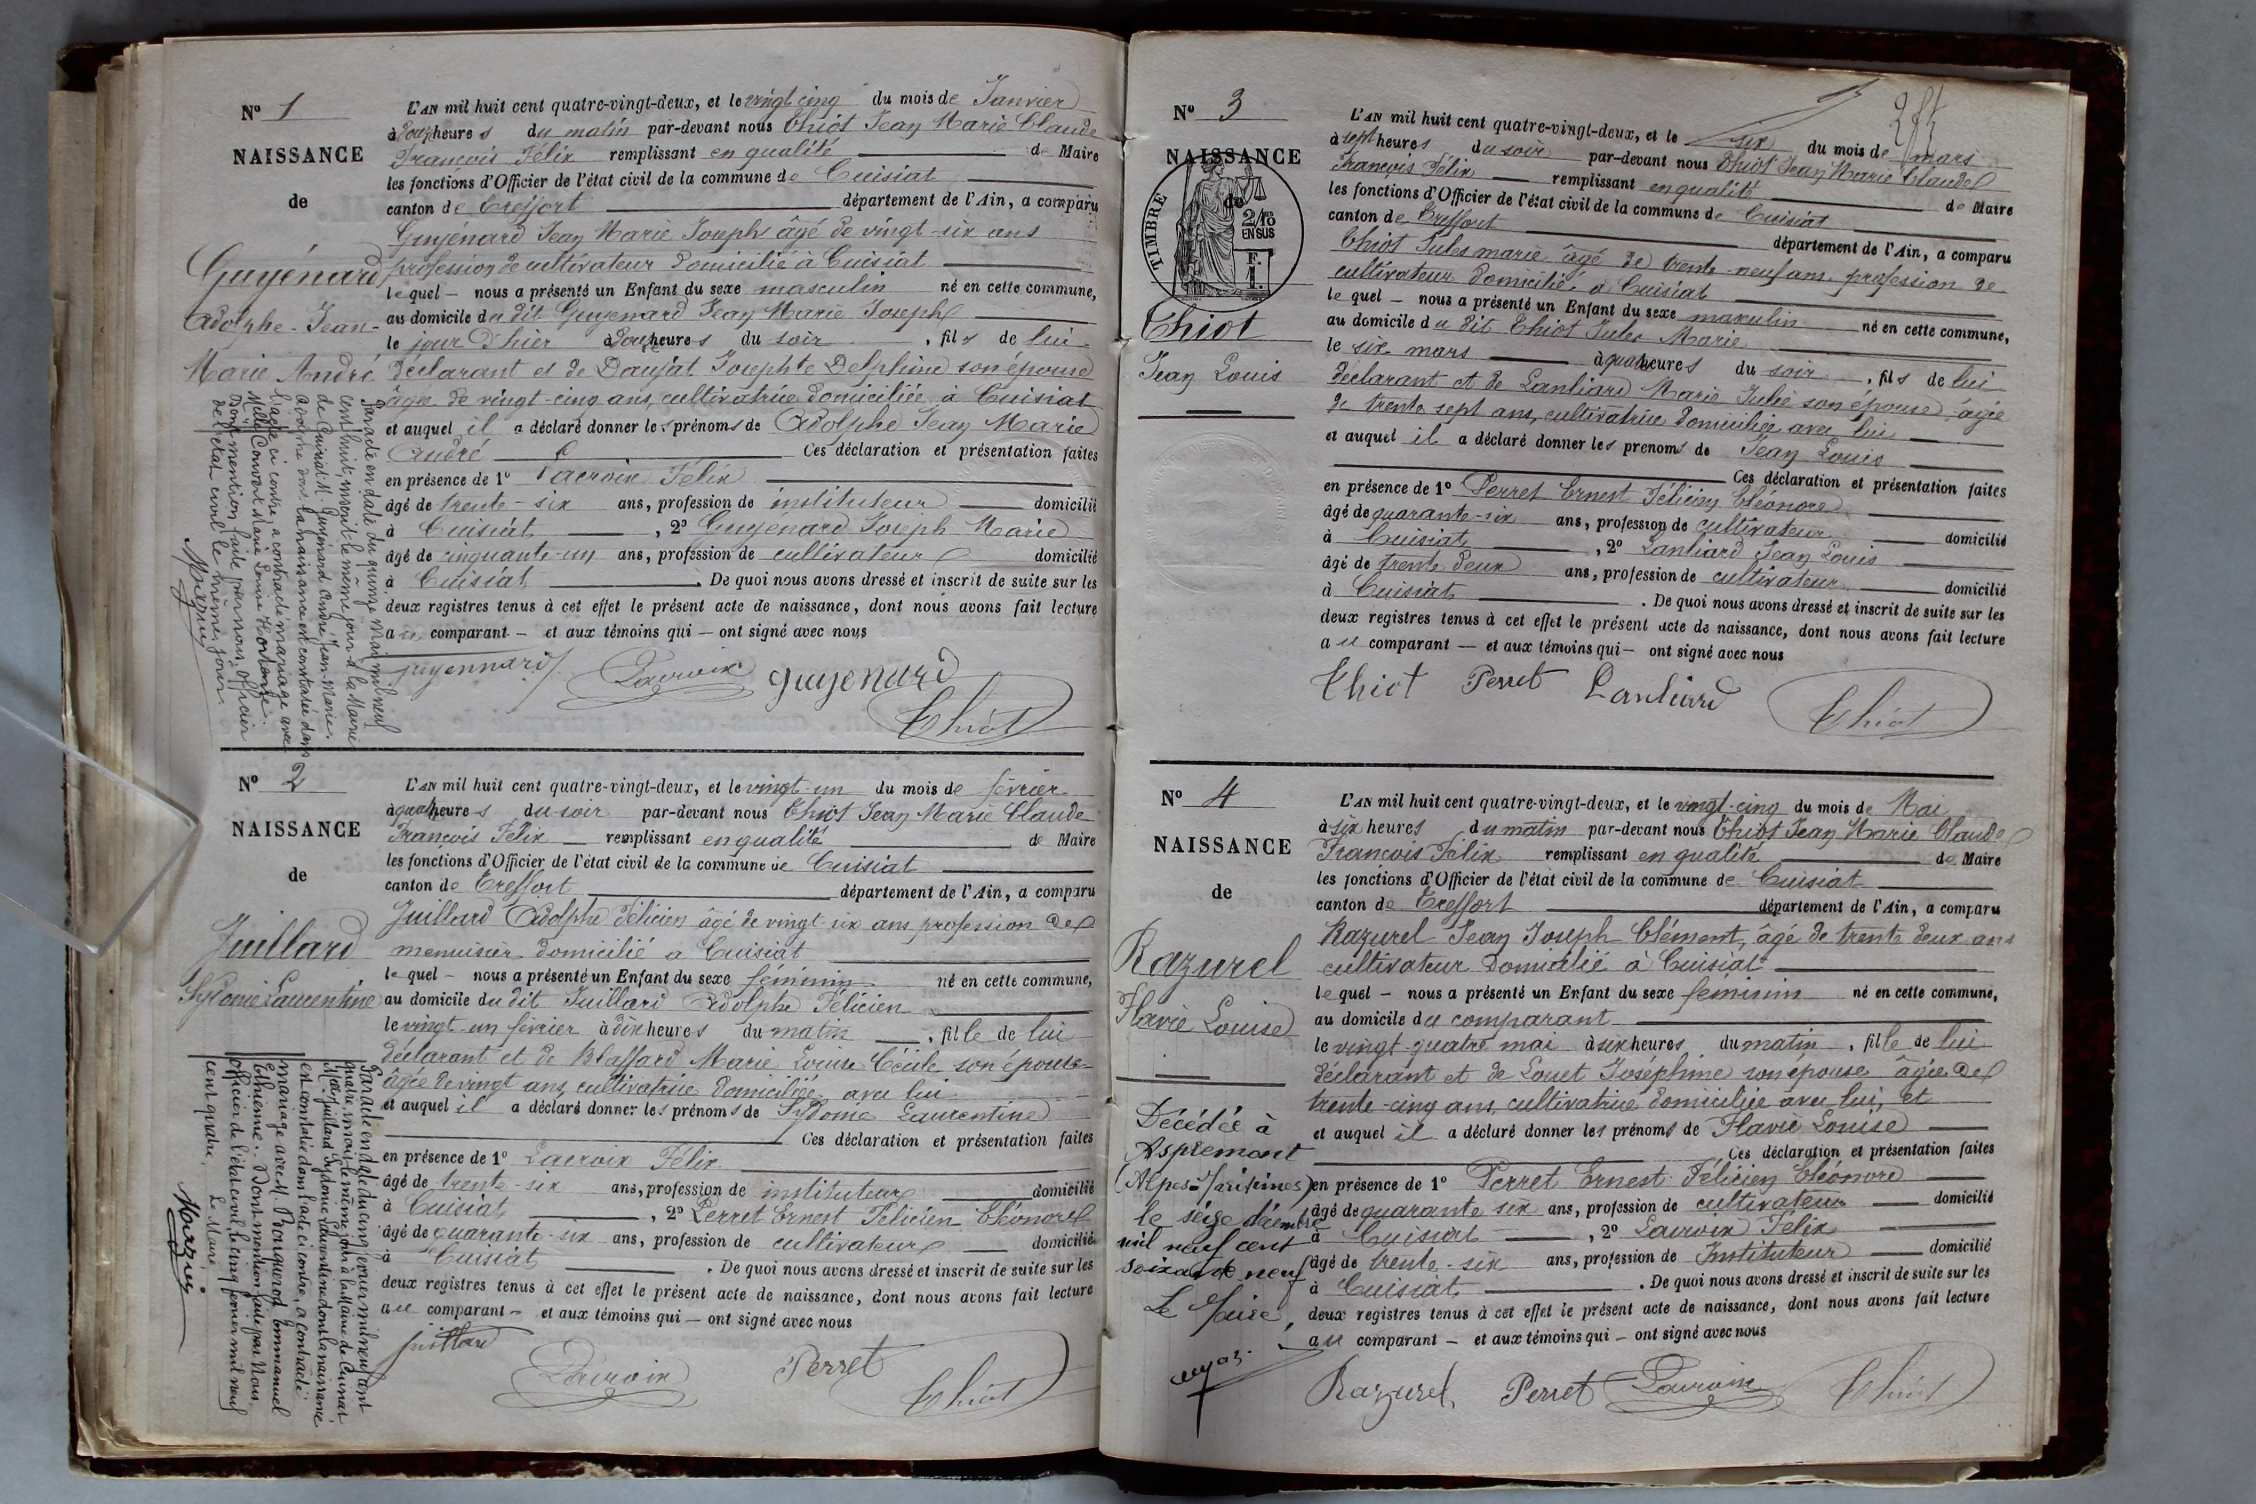 N° 1
NAISSANCE
de
Guyénard
Adolphe-Jean-
Marie André
L'AN mil huit cent quatre-vingt-deux, et le vingt cinq du mois de Janvier
à douze heures du matin par-devant nous Thiot Jean Marie Claude
François Félix remplissant en qualité de Maire
les fonctions d'Officier de l'état civil de la commune de Cuisiat
canton de Treffort département de l'Ain, a comparu
Guyénard Jean Marie Joseph âgé de vingt-six ans
profession de cultivateur domicilié à Cuisiat
lequel — nous a présenté un Enfant du sexe masculin né en cette commune,
au domicile du dit Guyenard Jean Marie Joseph
le jour d'hier à douze heures du soir, fils de lui
déclarant et de Daujat Josephte Delphine son épouse
âgée de vingt-cinq ans, cultivatrice domiciliée à Cuisiat
et auquel il a déclaré donner les prénoms de Adolphe Jean Marie
André Ces déclaration et présentation faites
en présence de 1° Lacroix Félix
âgé de trente-six ans, profession de instituteur domicilié
à Cuisiat, 2° Guyenard Joseph Marie
âgé de cinquante-un ans, profession de cultivateur domicilié
à Cuisiat. De quoi nous avons dressé et inscrit de suite sur les
deux registres tenus à cet effet le présent acte de naissance, dont nous avons fait lecture
au comparant — et aux témoins qui — ont signé avec nous
guyennard Lacroix guyenard
Thiot
Par acte en date du quinze Mai mil neuf
cent huit, inscrit le même jour à la Mairie
de Cuisiat M. Guyénard André, Jean-Marie,
Adolphe dont la naissance est constatée dans
l'acte ci contre, a contracté mariage avec
Melle Convert Marie Louise Hortense.
Dont mention faite par nous officier
de l'état civil le même jour.
N° 2
NAISSANCE
de
Juillard
Sydonie Laurentine
L'AN mil huit cent quatre-vingt-deux, et le vingt-un du mois de février
à quatre heures du soir par-devant nous Thiot Jean Marie Claude
François Félix remplissant en qualité de Maire
les fonctions d'Officier de l'état civil de la commune de Cuisiat
canton de Treffort département de l'Ain, a comparu
Juillard Adolphe Félicien âgé de vingt-six ans profession de
menuisier domicilié à Cuisiat
lequel — nous a présenté un Enfant du sexe féminin né en cette commune,
au domicile du dit Juillard Adolphe Félicien
le vingt-un février à dix heures du matin, fille de lui
déclarant et de Blaffard Marie Louise Cécile son épouse
âgée de vingt ans, cultivatrice domiciliée avec lui
et auquel il a déclaré donner les prénoms de Sydonie Laurentine
Ces déclaration et présentation faites
en présence de 1° Lacroix Félix
âgé de trente-six ans, profession de instituteur domicilié
à Cuisiat, 2° Perret Ernest Félicien Eléonore
âgé de quarante-six ans, profession de cultivateur domicilié
à Cuisiat. De quoi nous avons dressé et inscrit de suite sur les
deux registres tenus à cet effet le présent acte de naissance, dont nous avons fait lecture
au comparant — et aux témoins qui — ont signé avec nous
juillard
Lacroix Perret Thiot
Par acte en date du cinq février mil neuf cent
quatre, inscrit le même jour à la Mairie de Cuisiat
Melle Juillard Sydonie Laurentine dont la naissance
est constatée dans l'acte ci contre, a contracté
mariage avec M. Pouquerod Emmanuel
Ethienne. Dont mention faite par Nous
officier de l'état civil le cinq février mil neuf
cent quatre.
Le Maire,
N° 3
NAISSANCE
de
TIMBRE
2/10
EN SUS
F.
1.
Thiot
Jean Louis
L'AN mil huit cent quatre-vingt-deux, et le six du mois de mars
à sept heures du soir par-devant nous Thiot Jean Marie Claude
François Félix remplissant en qualité de Maire
les fonctions d'Officier de l'état civil de la commune de Cuisiat
canton de Treffort département de l'Ain, a comparu
Thiot Jules marie âgé de trente-neuf ans, profession de
cultivateur domicilié à Cuisiat
lequel — nous a présenté un Enfant du sexe masculin né en cette commune,
au domicile du dit Thiot Jules Marie
le six mars à quatre heures du soir, fils de lui
déclarant et de Lanliard Marie Julie son épouse âgée
de trente sept ans, cultivatrice domiciliée avec lui
et auquel il a déclaré donner les prénoms de Jean Louis
Ces déclaration et présentation faites
en présence de 1° Perret Ernest Félicien Eléonore
âgé de quarante-six ans, profession de cultivateur domicilié
à Cuisiat, 2° Lanliard Jean Louis
âgé de trente deux ans, profession de cultivateur domicilié
à Cuisiat. De quoi nous avons dressé et inscrit de suite sur les
deux registres tenus à cet effet le présent acte de naissance, dont nous avons fait lecture
au comparant — et aux témoins qui — ont signé avec nous
Thiot Perret Lanliard
Thiot
N° 4
NAISSANCE
de
Razurel
Flavie Louise
L'AN mil huit cent quatre-vingt-deux, et le vingt-cinq du mois de Mai
à six heures du matin par-devant nous Thiot Jean Marie Claude
François Félix remplissant en qualité de Maire
les fonctions d'Officier de l'état civil de la commune de Cuisiat
canton de Treffort département de l'Ain, a comparu
Razurel Jean Joseph Clément, âgé de trente deux ans
cultivateur domicilié à Cuisiat
lequel — nous a présenté un Enfant du sexe féminin né en cette commune,
au domicile du comparant
le vingt-quatre mai à six heures du matin, fille de lui
déclarant et de Louet Joséphine son épouse âgée de
trente-cinq ans, cultivatrice domiciliée avec lui, et
et auquel il a déclaré donner les prénoms de Flavie Louise
Ces déclaration et présentation faites
en présence de 1° Perret Ernest Félicien Eléonore
âgé de quarante six ans, profession de cultivateur domicilié
à Cuisiat, 2° Lacroix Félix
âgé de trente-six ans, profession de Instituteur domicilié
à Cuisiat. De quoi nous avons dressé et inscrit de suite sur les
deux registres tenus à cet effet le présent acte de naissance, dont nous avons fait lecture
au comparant — et aux témoins qui — ont signé avec nous
Razurel Perret Lacroix Thiot
Décédée à
Aspremont
(Alpes-Maritimes)
le seize décembre
mil neuf cent
soixante neuf
Le Maire,